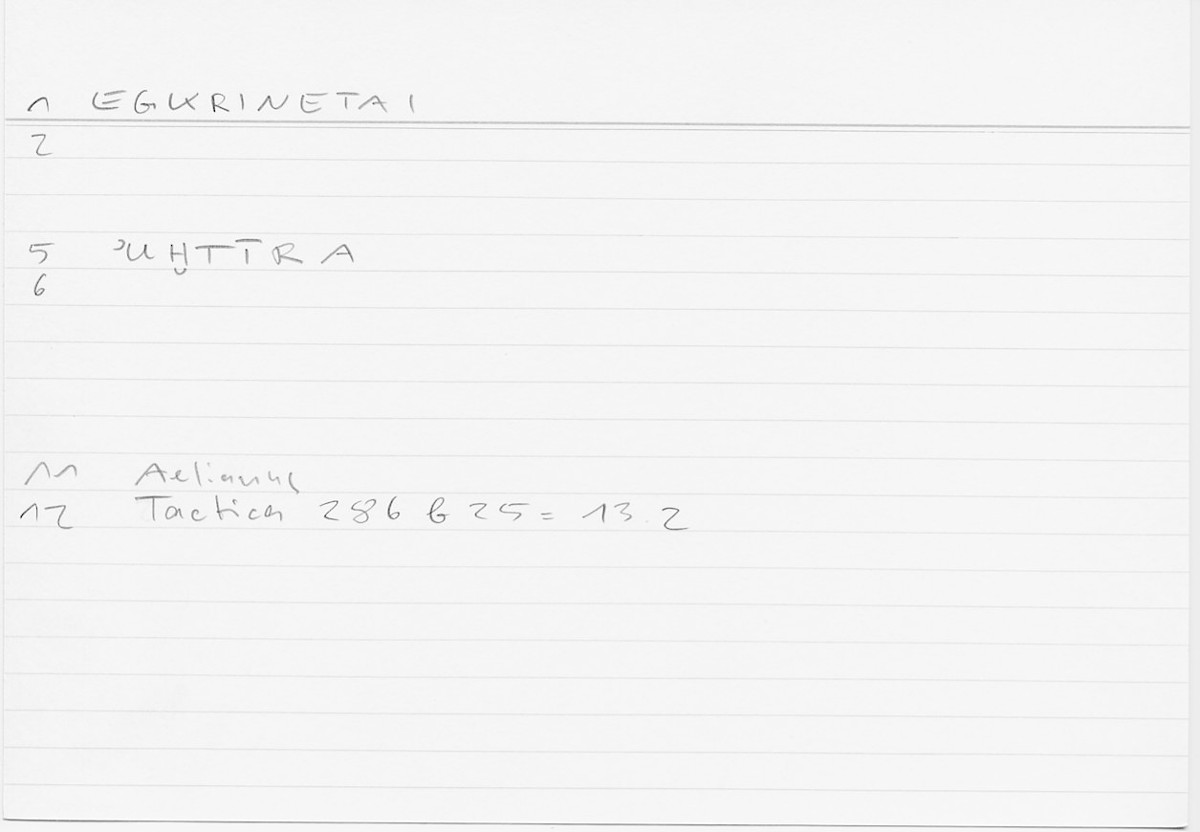 1 EGKRINETAI
2
5 ʾUḪTĪRA
6
11 Aelianus
12 Tactica 286 b 25 = 13.2